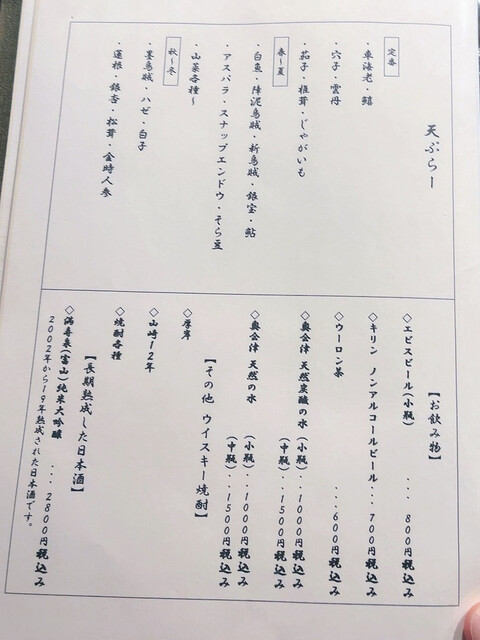 天ぷらー
定番
・車海老・鱚
・穴子・雲丹
・茄子・椎茸・じゃがいも
春〜夏
・白魚・障泥烏賊・新烏賊・銀宝・鮎
・アスパラ・スナップエンドウ・そら豆
・山菜各種〜
秋〜冬
・墨烏賊・ハゼ・白子
・蓮根・銀杏・松茸・金時人参
【お飲み物】
◇エビスビール(小瓶) ・・・800円税込み
◇キリン ノンアルコールビール・・・700円税込み
◇ウーロン茶 ・・・600円税込み
◇奥会津 天然炭酸の水 (小瓶)・・・1000円税込み
(中瓶)・・・1500円税込み
◇奥会津 天然の水 (小瓶)・・・1000円税込み
(中瓶)・・・1500円税込み
【その他 ウイスキー焼酎】
◇厚岸
◇山崎12年
◇焼酎各種
【長期熟成した日本酒】
◇満寿泉(富山)純米大吟醸 ・・・2800円税込み
2002年から19年熟成された日本酒です。